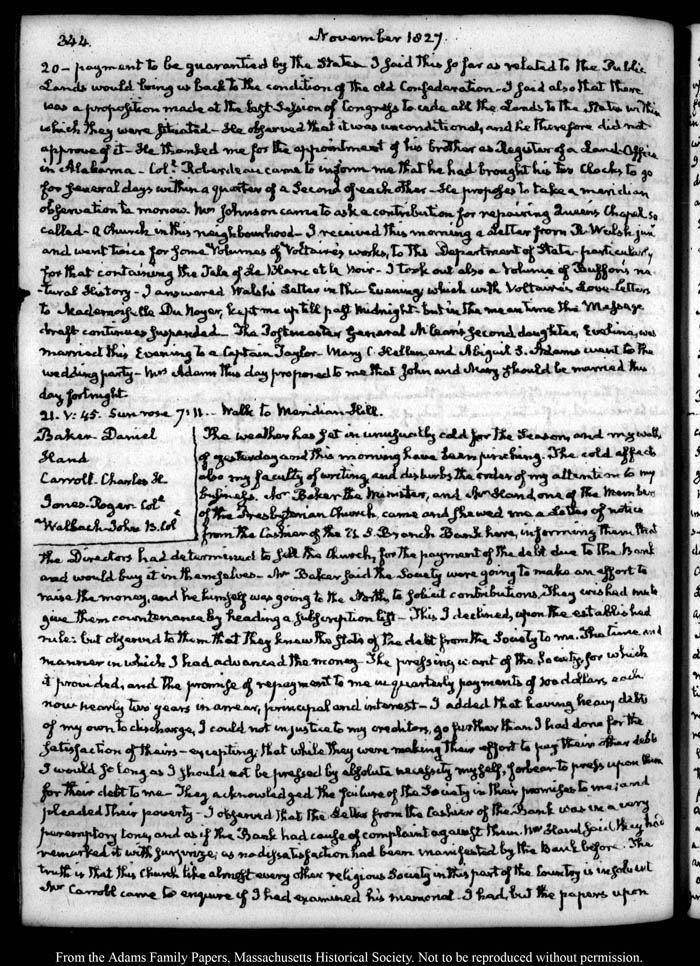 344.
November 1827.
20 – payment to be guarantied by the States – I said this so far as related to the Public
Lands would bring us back to the condition of the old Confederation – I said also that there
was a proposition made at the last Session of Congress to cede all the Lands to the States within
which they were situated – He observed that it was unconditional, and he therefore did not
approve of it – He thanked me for the appointment of his brother as Register of a Land-Office
in Alabama – Coll. Roberdeau came to inform me that he had brought his two Clocks to go
for several days within a quarter of a Second of each other – He proposes to take a meridian
observation to morrow. Mr Johnson came to ask a contribution for repairing Queen's Chapel so
called – a Church in this neighbourhood – I received this morning a Letter from R. Walsh junr
and went twice for some Volumes of Voltaire's works, to the Department of State particularly
for that containing the Tale of Le Blanc et le Noir – I took out also a volume of Buffon's na-
-tural History – I answered Walsh's Letter in the Evening which with Voltaire's Love-letters
to Mademoiselle Du Noyer, kept me up till past midnight – but in the mean time the Message
draft continues suspended – The Postmaster General McLean's second daughter, Evelina, was
married this Evening to a Captain Taylor – Mary C. Hellen, and Abigail S. Adams went to the
wedding party – Mrs Adams this day proposed to me that John and Mary should be married this
day fortnight.
21. V: 45. Sun rose 7:11. – Walk to Meridian Hill.
Baker Daniel
Hand
Carroll. Charles H.
Jones. Roger Coll
Walbach. John B. Coll
The weather has set in unusually cold for the Season, and my walks
of yesterday and this morning have been pinching. The cold affects
also my faculty of writing, and disturbs the order of my attention to my
business. Mr Baker the Minister, and Mr Hand, one of the Members
of the Presbyterian Church, came and shewed me a Letter of notice
from the Cashier of the U.S. Branch Bank here, informing them that
the Directors had determined to sell the Church, for the payment of the debt due to the Bank
and would buy it in themselves – Mr Baker said the Society were going to make an effort to
raise the money, and he himself was going to the North, to solicit contributions. They wished me to
give them countenance by heading a subscription list – This I declined, upon the established
rule: but observed to them that they knew the state of the debt from the Society to me. The time and
manner in which I had advanced the money – The pressing want of the Society, for which
it provided, and the promise of repayment to me in quarterly payments of 100 dollars each
now nearly two years in arrear, principal and interest – I added that having heavy debts
of my own to discharge, I could not in justice to my creditors, go further than I had done for the
satisfaction of theirs – excepting, that while they were making their effort to pay their other debts
I would so long as I should not be pressed by absolute necessity myself, forbear to press upon them
for their debt to me – They acknowledged the failure of the Society in their promises to me; and
pleaded their poverty – I observed that the Letter from the Cashier of the Bank was in a very
peremptory tone, and as if the Bank had cause of complaint against them. Mr Hand said they had
remarked it with surprize, as no dissatisfaction had been manifested by the Bank before. The
truth is that this Church like almost every other religious Society in this part of the Country is insolvent
Mr Carroll came to enquire if I had examined his memorial – I had, but the papers upon
From the Adams Family Papers, Massachusetts Historical Society. Not to be reproduced without permission.